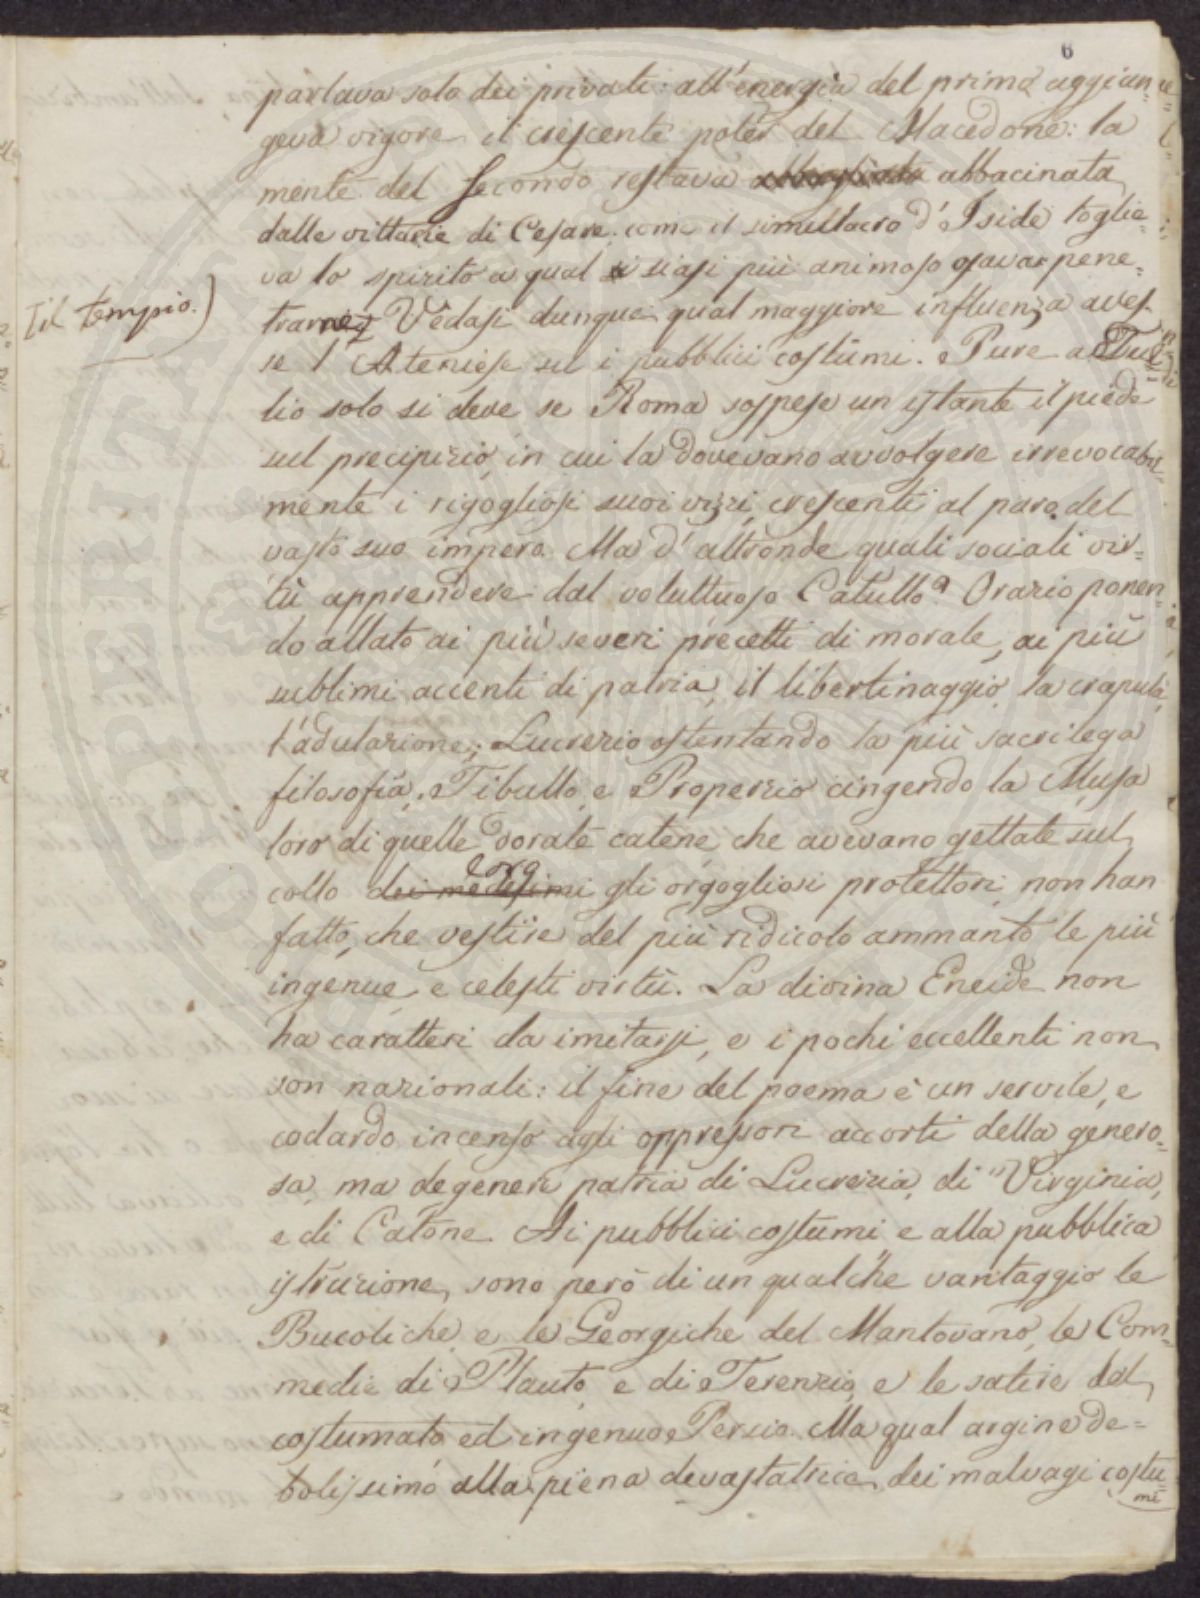 6
parlava solo dei privati: all'energia del primo aggiun=
geva vigore il crescente poter del Macedone: la
mente del secondo restava abbacinata
dalle vittorie di Cesare, come il simullacro d'Iside toglie=
va lo spirito a qual siasi più animoso osava pene=
trarne
[il tempio.)
Vedasi dunque qual maggiore influenza aves=
se l'Ateniese su i pubblici costumi. Pure a Tul=
lio solo si deve se Roma sospese un istante il piede
sul precipizio, in cui la dovevano avvolgere irrevocabil=
mente i rigogliosi suoi vizi, crescenti al paro del
vasto suo impero. Ma d'altronde quali sociali vir=
tù apprendere dal voluttuoso Catullo? Orazio ponen=
do allato ai più severi precetti di morale, ai più
sublimi accenti di patria, il libertinaggio, la crapula,
l'adulazione; Lucrezio ostentando la più sacrilega
filosofia, Tibullo, e Properzio cingendo la Musa
loro di quelle dorate catene, che avevano gettate sul
loro
collo dei medesimi gli orgogliosi protettori, non han
fatto, che vestire del più ridicolo ammanto le più
ingenue, e celesti virtù. La divina Eneide non
ha caratteri da imitarsi, e i pochi eccellenti non
son nazionali: il fine del poema è un servile, e
codardo incenso agli oppressori accorti della genero=
sa, ma degenere patria di Lucrezia, di Virginia,
e di Catone. Ai pubblici costumi e alla pubblica
istruzione, sono però di un qualche vantaggio le
Bucoliche, e le Georgiche del Mantovano, le Com=
medie di Plauto, e di Terenzio, e le satire del
costumato ed ingenuo Persio. Ma qual argine de=
bolissimo alla piena devastatrice dei malvagi costu=
mi